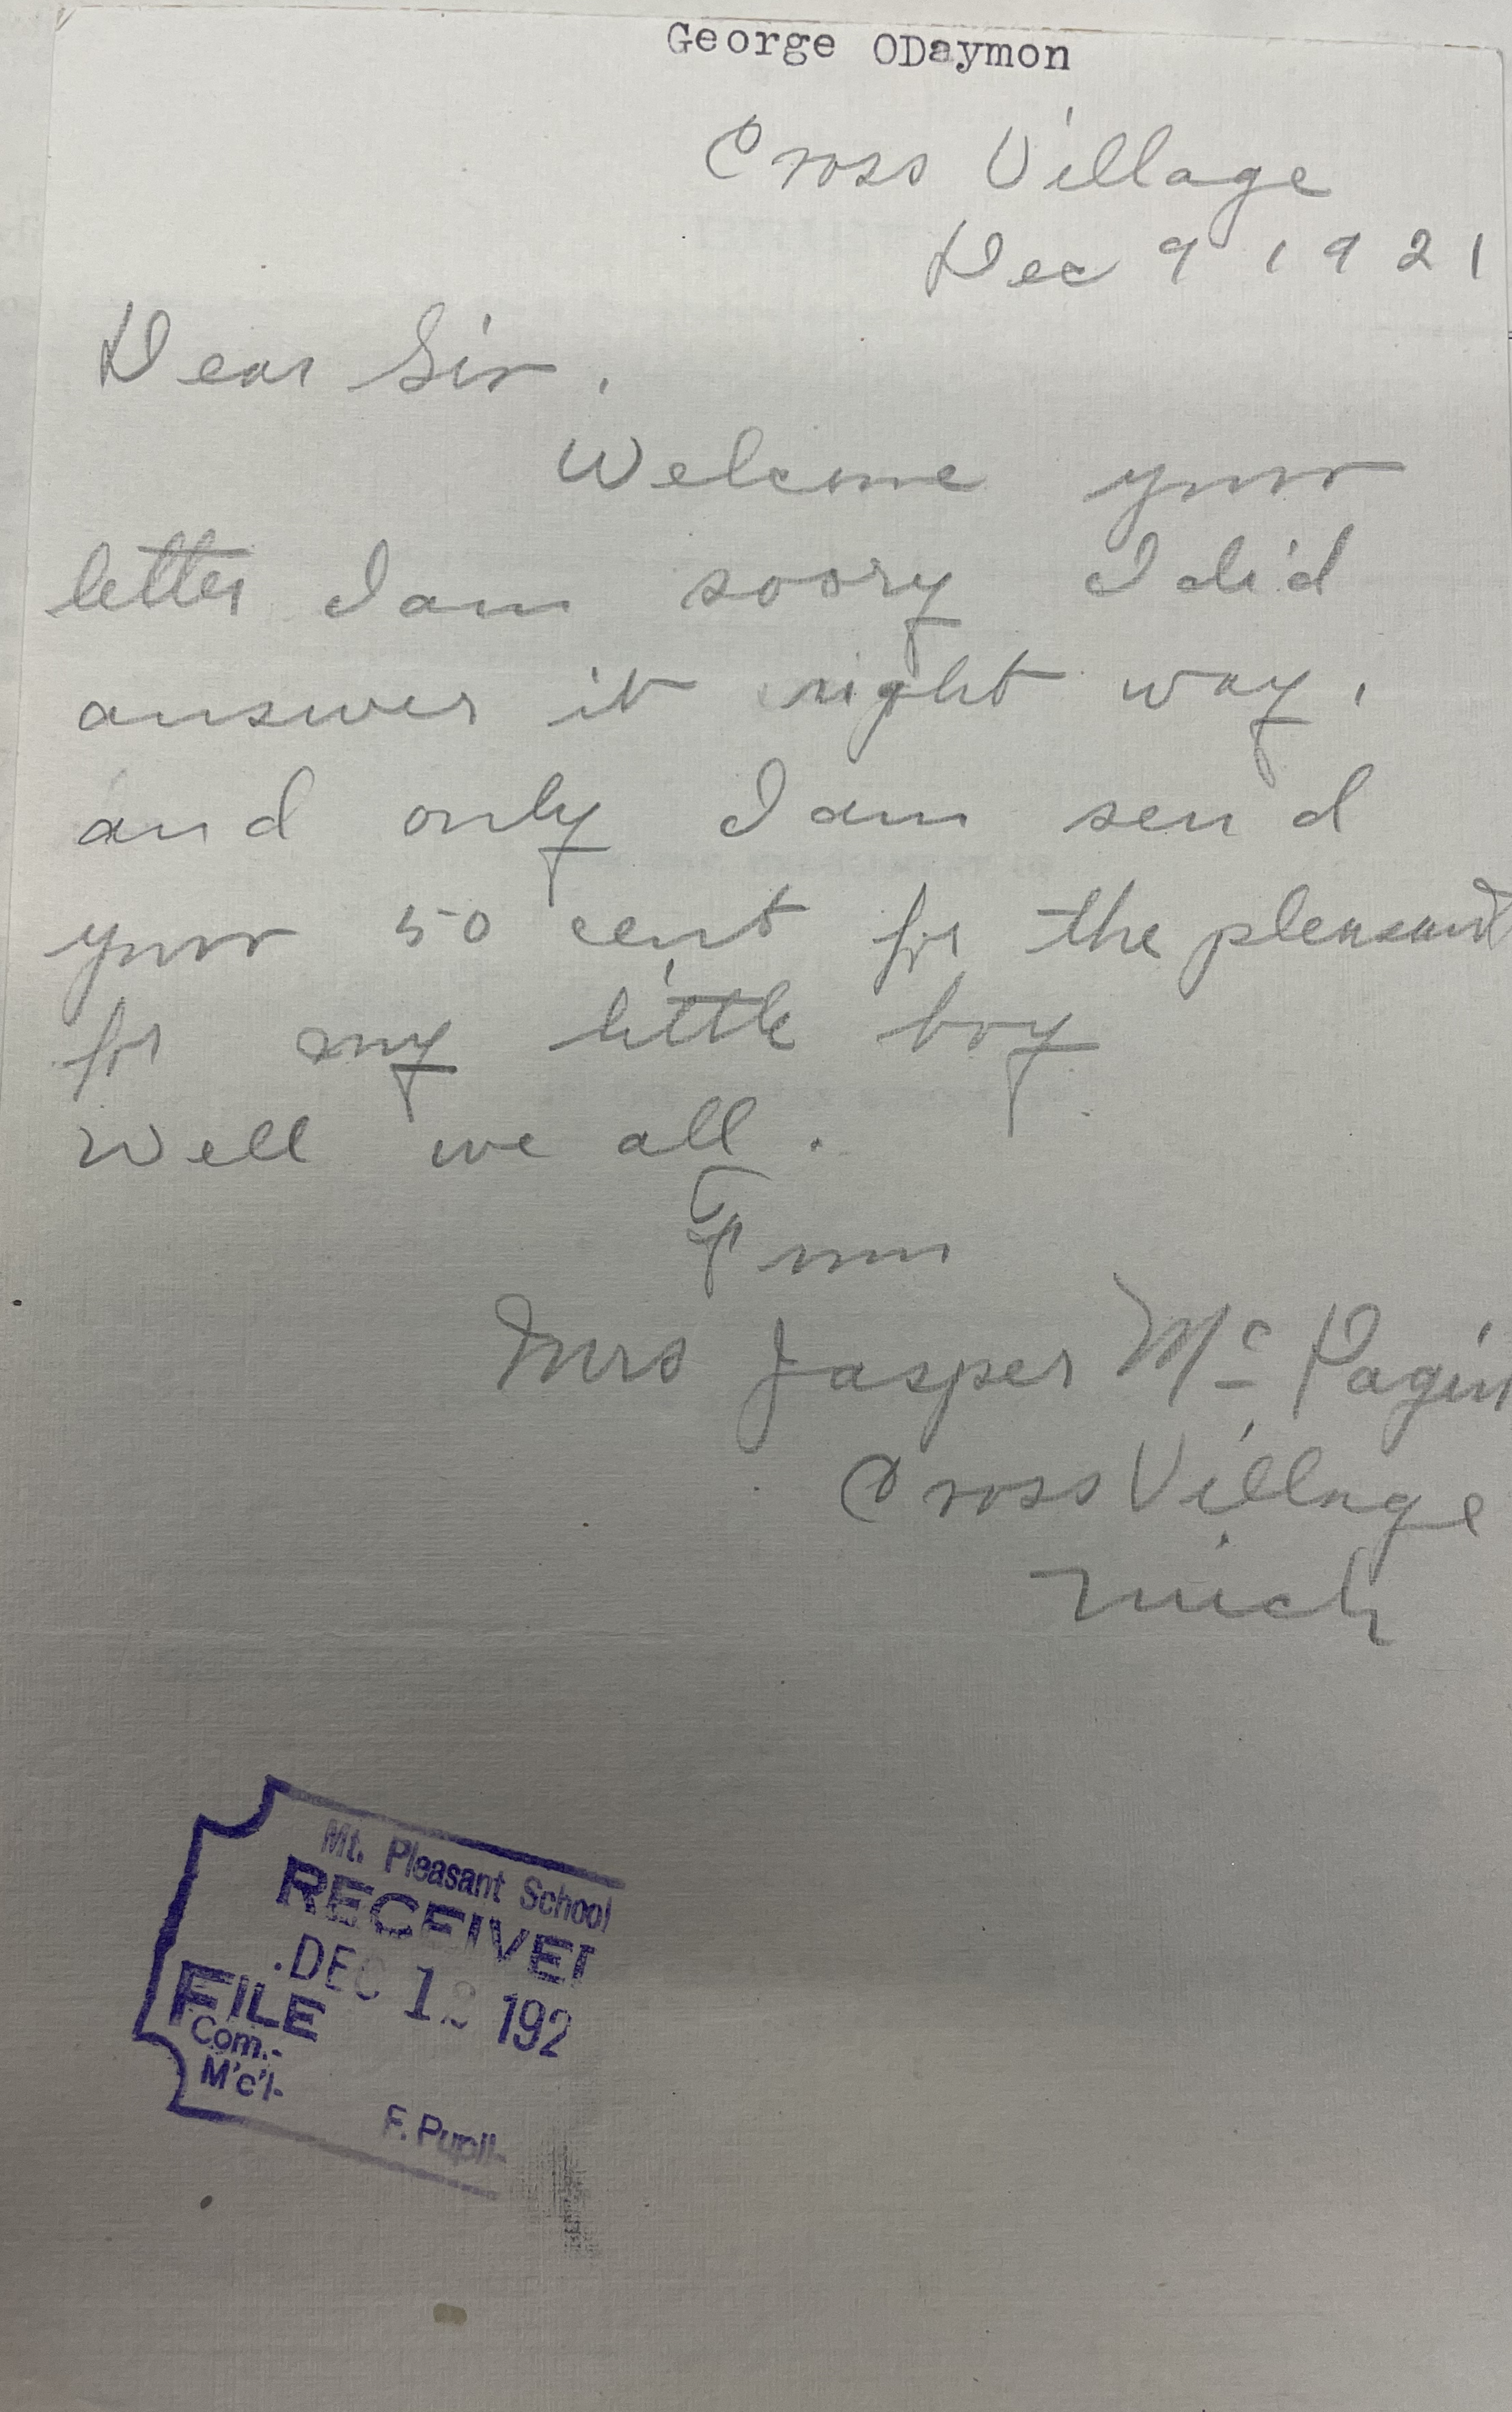 George ODaymon
Cross Village
Dec 9 1921
Dear Sir.
Welcome your
letter I am soory I did
answer it right way.
and only I am send
your 50 cent for the pleasant
for my little boy
Well we all.
From
Mrs Jasper Mc
Cross Village
Mich
Mt. Pleasant School
RECEIVED
DEC 12 192
FILE
Com.-
M'c'l-
F. Pupil-